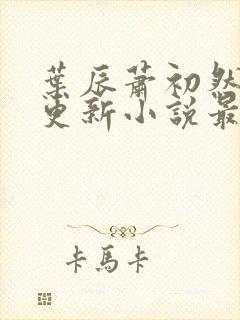 葉辰蕭初然
更新小說最
卡馬卡